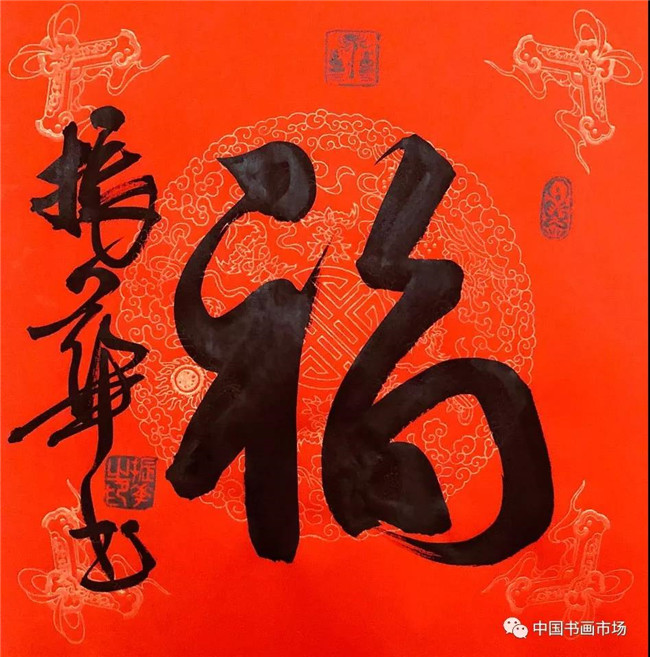 福
振華书
中国书画市场